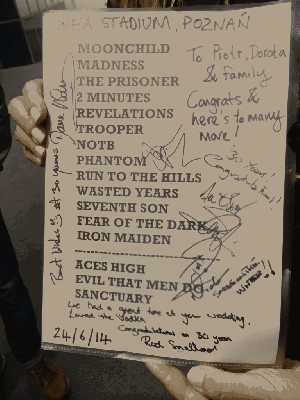 STADIUM, POZNAŃ
MOONCHILD
MADNESS
THE PRISONER
2 MINUTES
REVELATIONS
TROOPER
NOTB
PHANTOM
RUN TO THE HILLS
WASTED YEARS
SEVENTH SON
FEAR OF THE DARK
IRON MAIDEN
ACES HIGH
EVIL THAT MEN DO
SANCTUARY
To Piotr, Dorota
& Family
Congrats &
here's to many
more!
30 Years!
Congratulations!
Best Wishes at 30 years Dave
We had a great time at your wedding.
Loved the Vodka
Congratulations on 30 years
Rod Smallwood
24/6/14